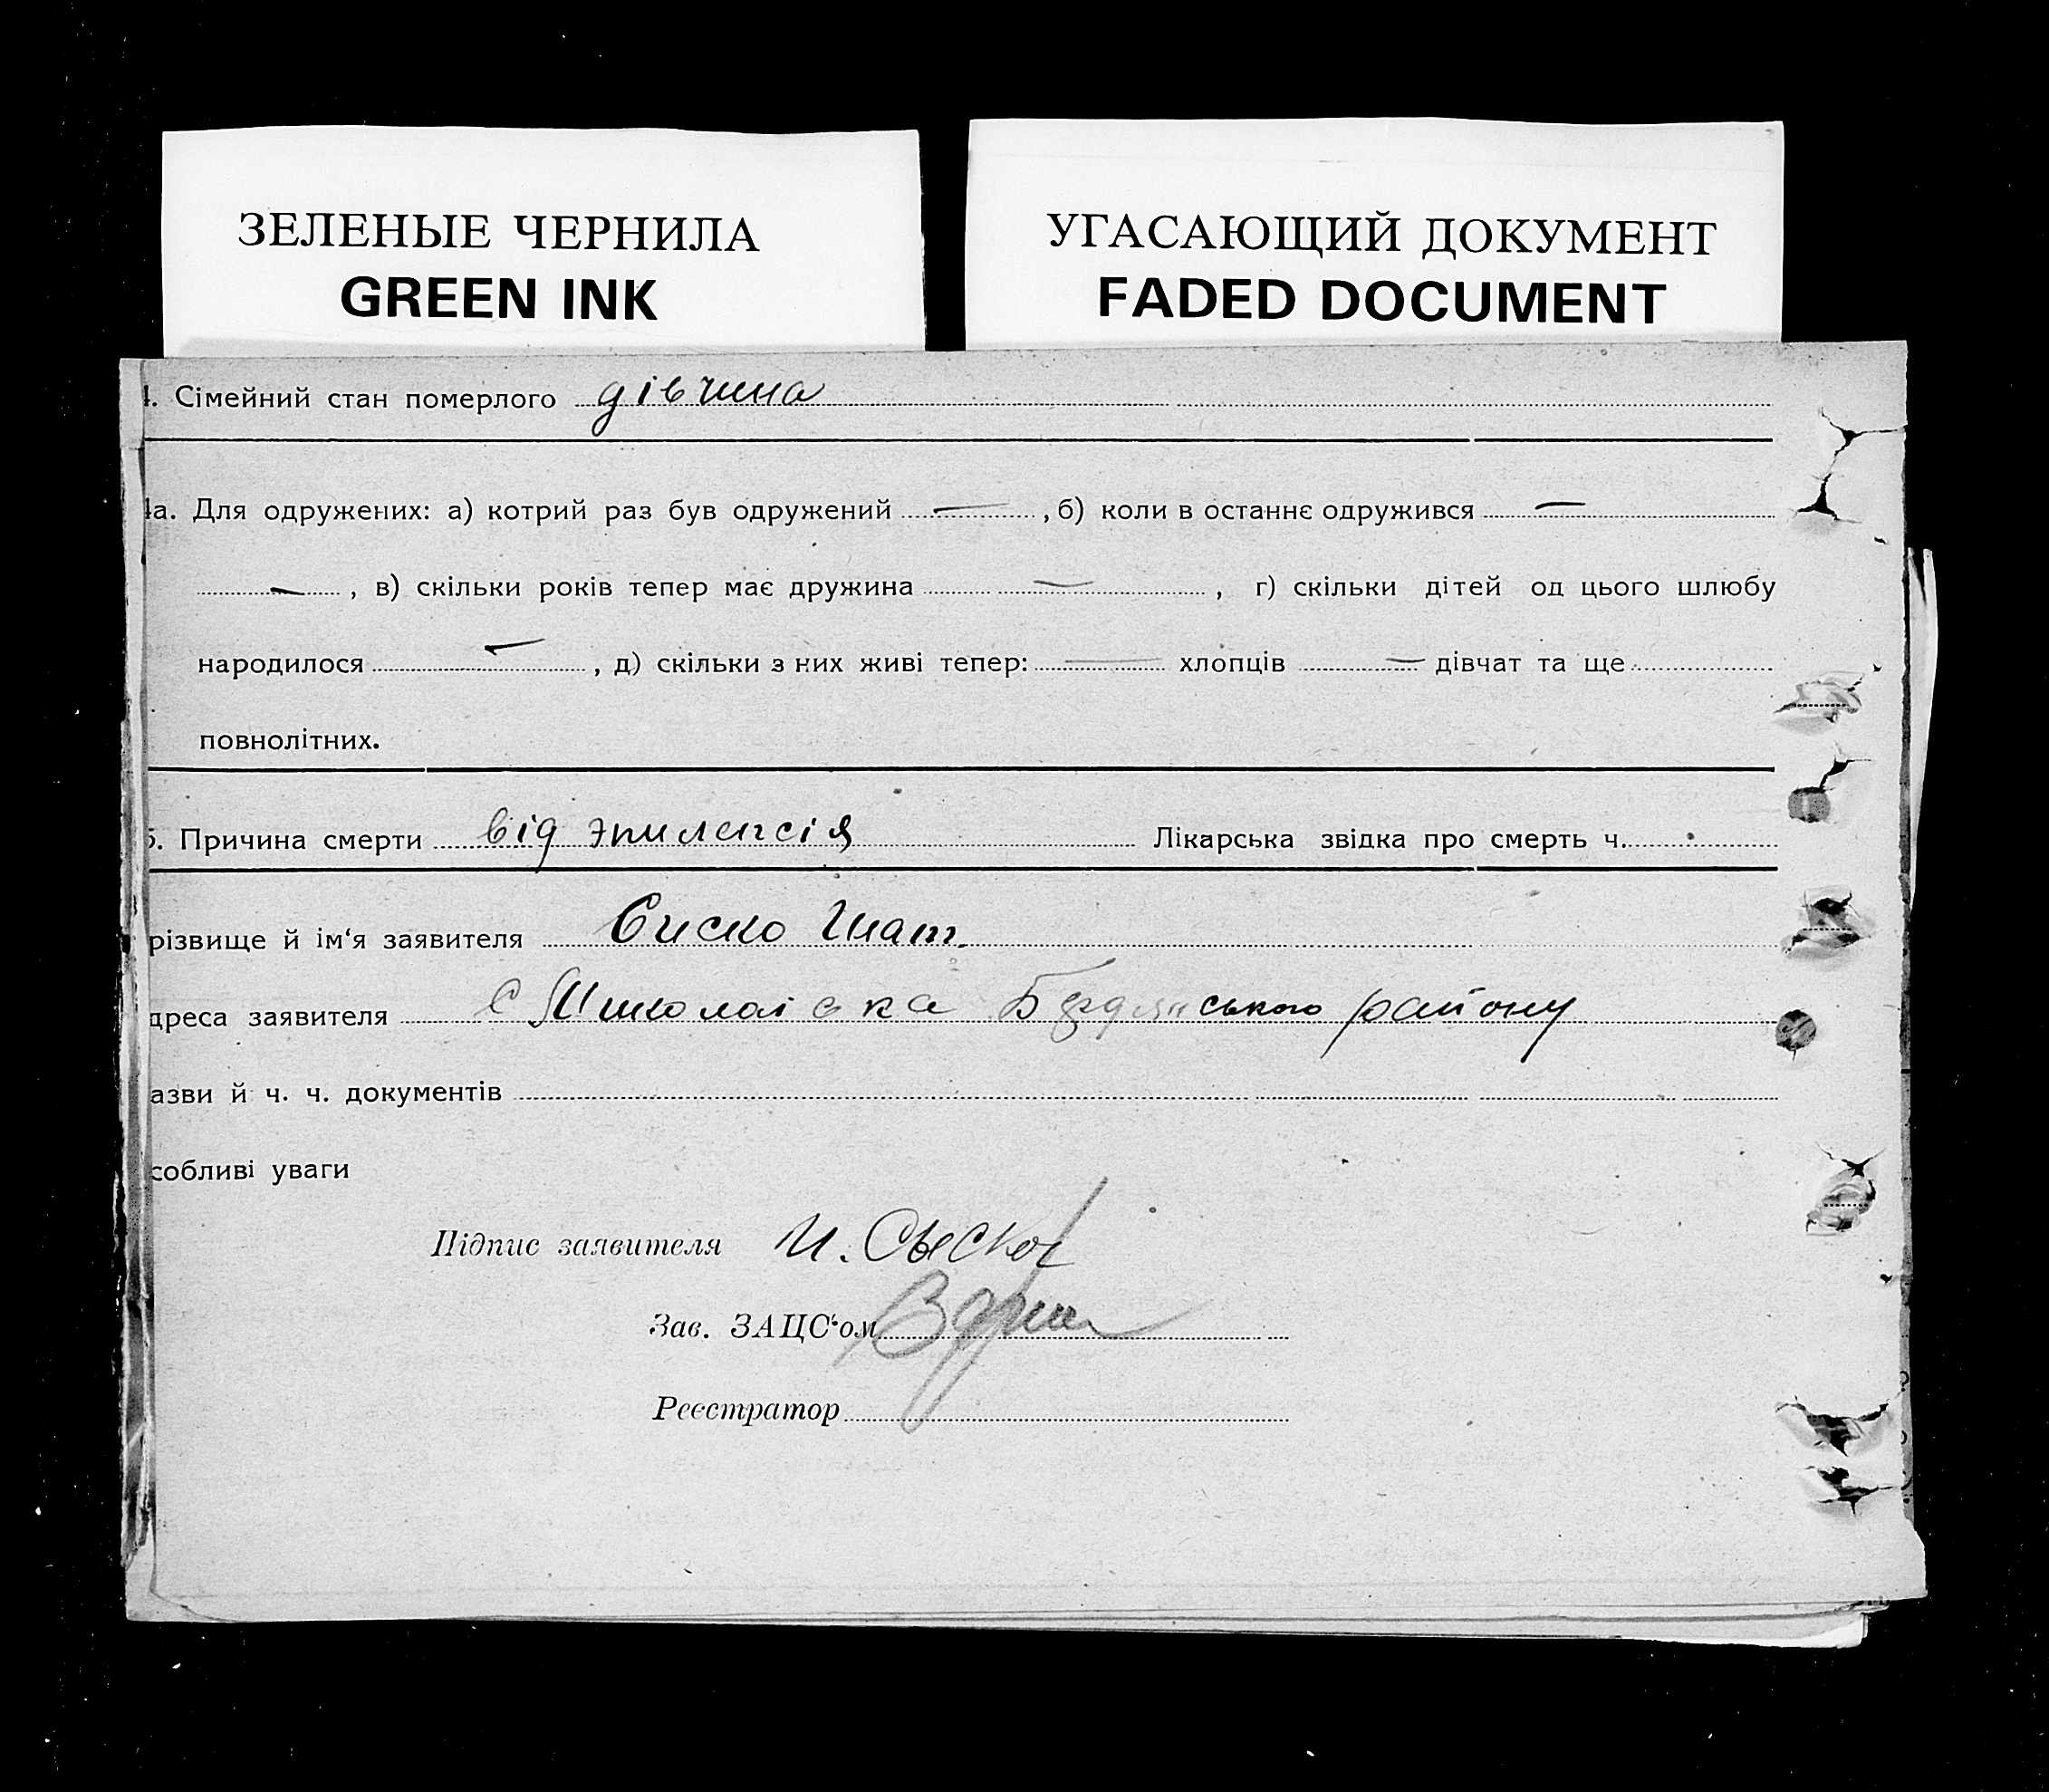 ЗЕЛЕНЫЕ ЧЕРНИЛА
GREEN INK
УГАСАЮЩИЙ ДОКУМЕНТ
FADED DOCUMENT
. Сімейний стан померлого дівчина
а. Для одружених: а) котрий раз був одружений —, б) коли в останнє одружився —
—, в) скільки років тепер має дружина —, г) скільки дітей од цього шлюбу
народилося —, д) скільки з них живі тепер: — хлопців — дівчат та ще
повнолітних.
. Причина смерти від эпилепсія Лікарська звідка про смерть ч.
різвище й ім‘я заявителя
дреса заявителя с Миколаівка Бердянського району
азви й ч. ч. документів
собливі уваги
Підпис заявителя И.
Зав. ЗАЦС‘ом
Реєстратор